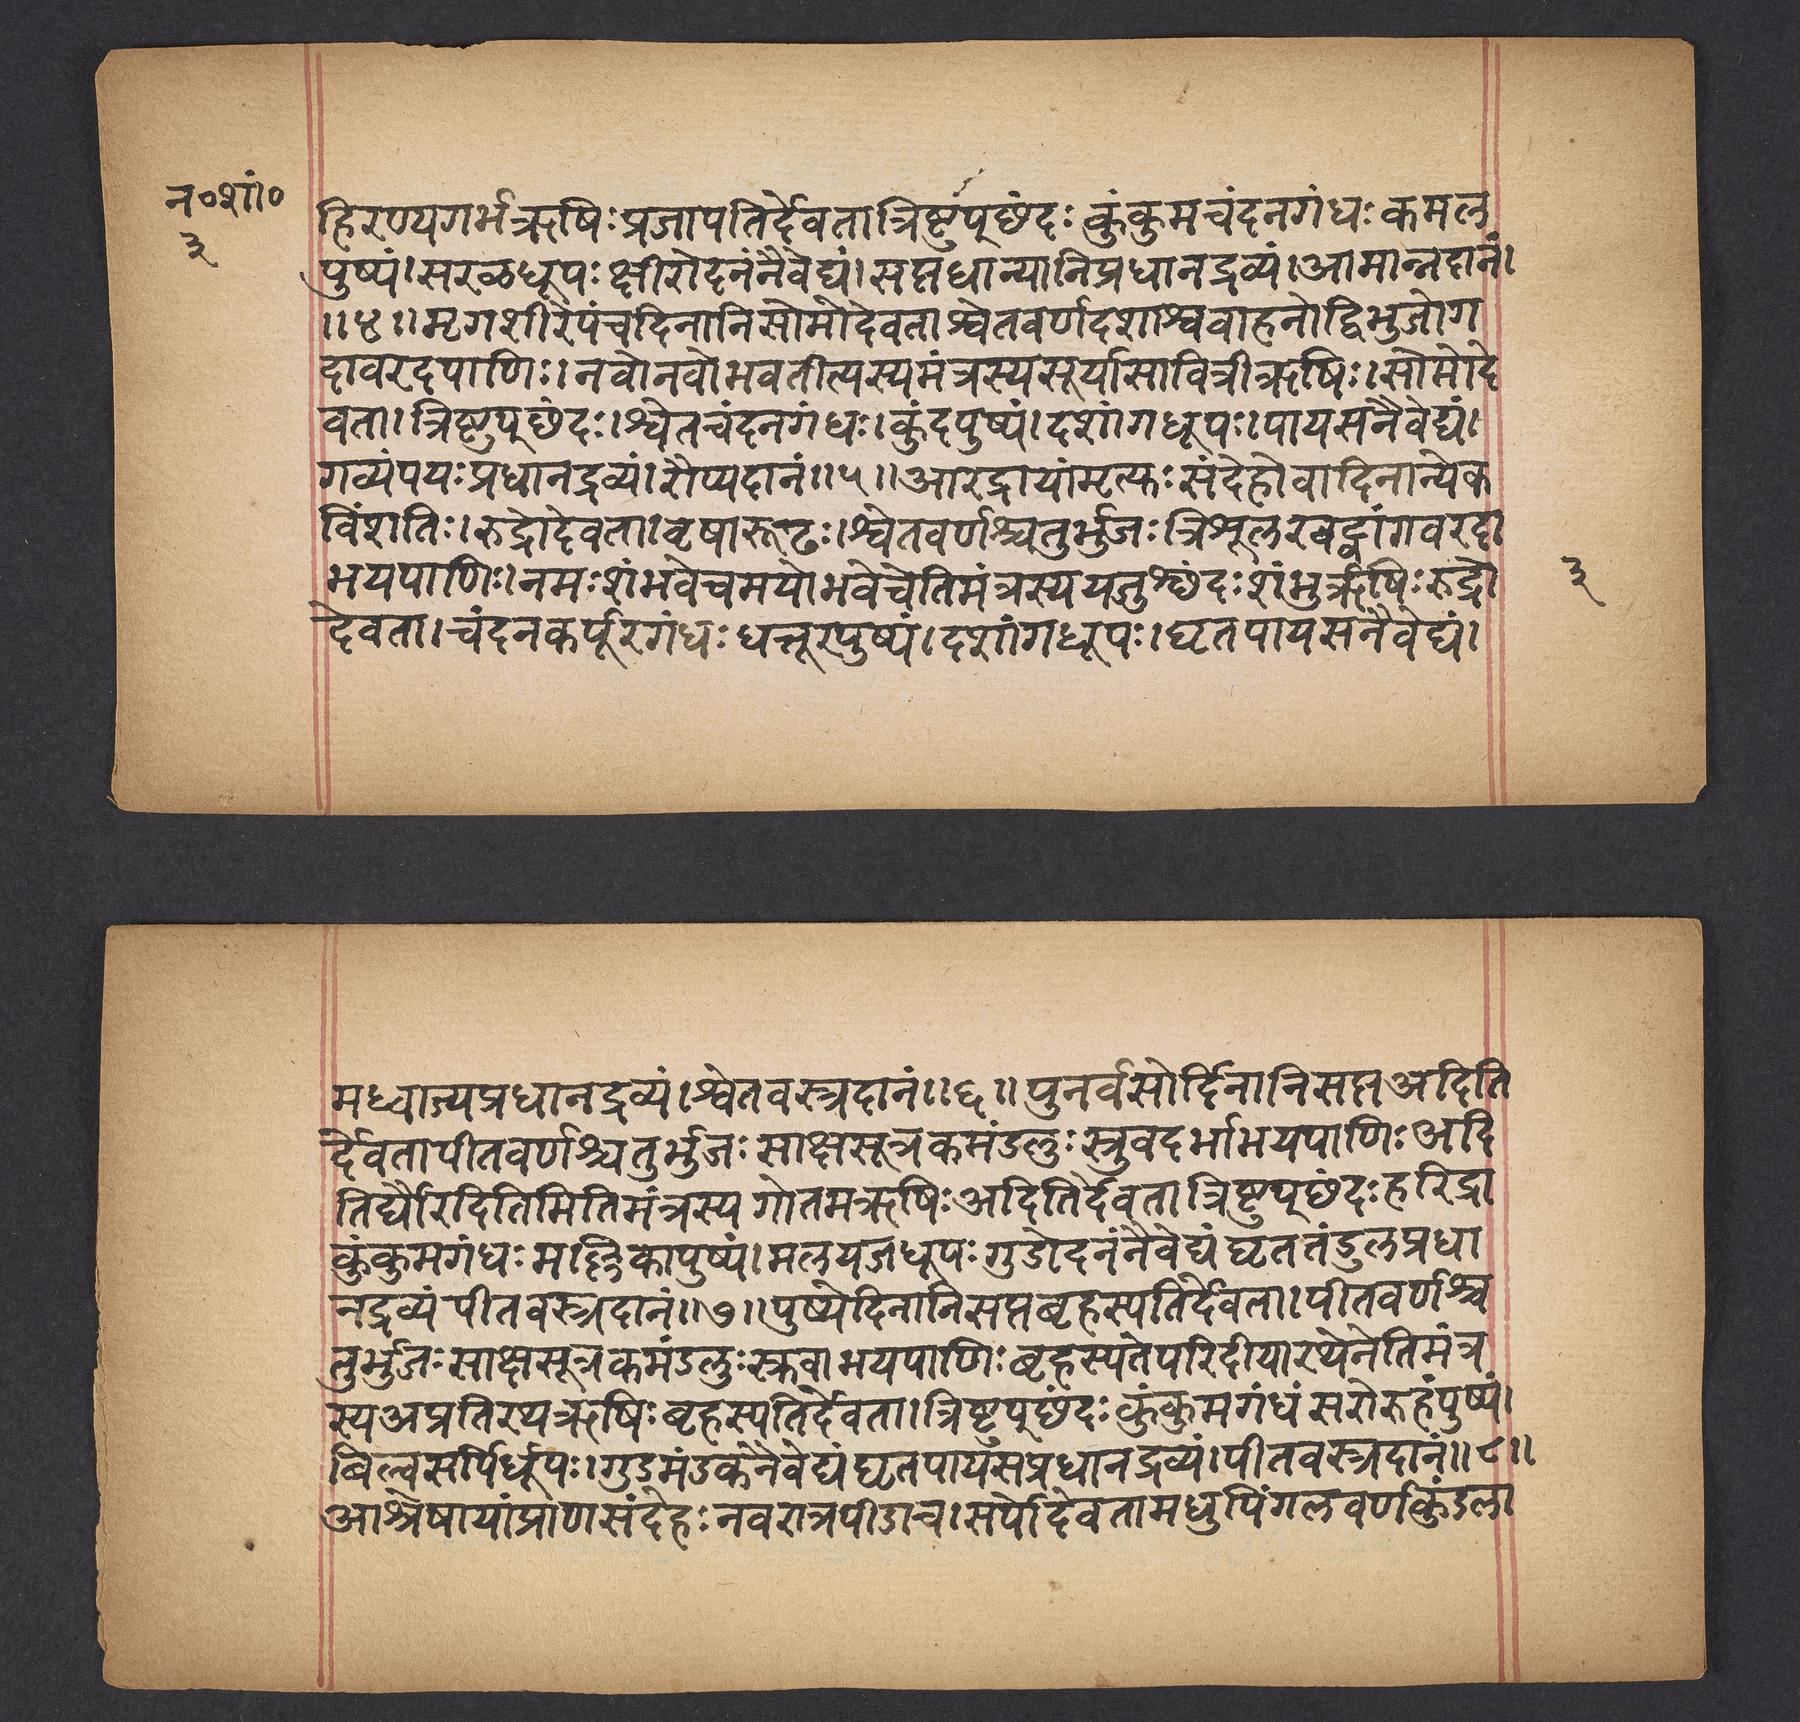 न०शां०
३
हिरण्यगर्भऋषिः प्रजापतिर्देवतात्रिष्टुप्छंदः कुंकुमचंदनगंधः कमल
पुष्यं। सरळधूपः क्षीरोदनंनैवेद्यं। सप्तधान्यानिप्रधानद्रव्यं। आमान्नदानं।
॥४॥ मृगशीर्रेपंचदिनानिसोमोदेवताश्वेतवर्णदशाश्ववाहनोद्विभुजोग
दावरदपाणिः। नवोनवोभवतीत्यस्यमंत्रस्यसूर्यासावित्रीऋषिः। सोमोदे
वता। त्रिष्टुप्छंदः। श्वेतचंदनगंधः। कुंदपुष्यं। दशांगधूपः। पायसनैवेद्यं।
गव्यंपयः प्रधानद्रव्यं। रौप्यदानं॥५॥ आरद्रायांमृत्यः संदेहोवादिनान्येक
विंशतिः। रुद्रोदेवता। वृषारूढः। श्वेतवर्णश्चतुर्भुजः त्रिशूलखट्वांगवरदा
भयपाणिः। नमः शंभवेचमयोभवेचेतिमंत्रस्ययजुश्छंदः शंभुर्ऋषिः रुद्रो
देवता। चंदनकर्पूरगंधः धत्तूरपुष्यं। दशांगधूपः। घृतपायसनैवेद्यं।
३
मध्वाज्यप्रधानद्रव्यं। श्वेतवस्त्रदानं॥६॥ पुनर्वसोर्दिनानिसप्तअदिति
र्देवतापीतवर्णश्चतुर्भुजः साक्षसूत्रकमंडलुः स्त्रुवदर्भाभयपाणिः अदि
तिर्द्यौरदितिमितिमंत्रस्य गोतमऋषिः अदितिर्देवता त्रिष्टुप्छंदः हरिद्रा
कुंकुमगंधः मल्लिकापुष्यं। मलयजधूपः गुडोदनंनैवेद्यं घृततंडुलप्रधा
नद्रव्यं पीतवस्त्रदानं॥७॥ पुष्येदिनानिसप्तबृहस्पतिर्देवता। पीतवर्णश्च
तुर्भुजः साक्षसूत्रकमंडलुः स्त्रुवाभयपाणिः बृहस्पतेपरिदीयारथेनेतिमंत्र
स्यअप्रतिरथऋषिः बृहस्पतिर्देवता। त्रिष्टुप्छंदः कुंकुमगंधं सरोरुहंपुष्यं।
बिल्वसर्पिर्धूपः। गुडमंडकंनैवेद्यं घृतपायसप्रधानद्रव्यं। पीतवस्त्रदानं॥८॥
आश्लेषायांप्राणसंदेहः नवरात्रपीडाच। सर्पोदेवतामधुपिंगलवर्णकुंडला